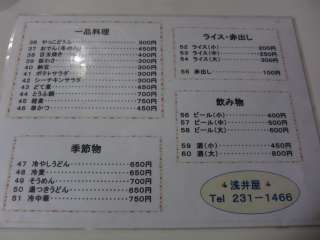 一品料理
36 やっこどうふ 300円
37 おでん(冬のみ) 450円
38 目玉焼き 300円
39 板わさ 300円
40 納豆 300円
41 ポテトサラダ 300円
42 シーチキンサラダ
43 どて煮 450円
44 とうふ鍋 700円
45 味噌 750円
46 串かつ 450円
季節物
47 冷やしうどん 650円
48 冷麦 650円
49 そうめん 700円
50 湯つきうどん 650円
51 冷中華 750円
ライス・赤出し
52 ライス(小) 200円
53 ライス(中) 250円
54 ライス(大)
56 赤出し 100円
飲み物
56 ビール(小) 400円
57 ビール(中) 500円
58 ビール(大) 600円
59 酒(小) 450円
60 酒(大) 800円
浅井屋
Tel 231-1466